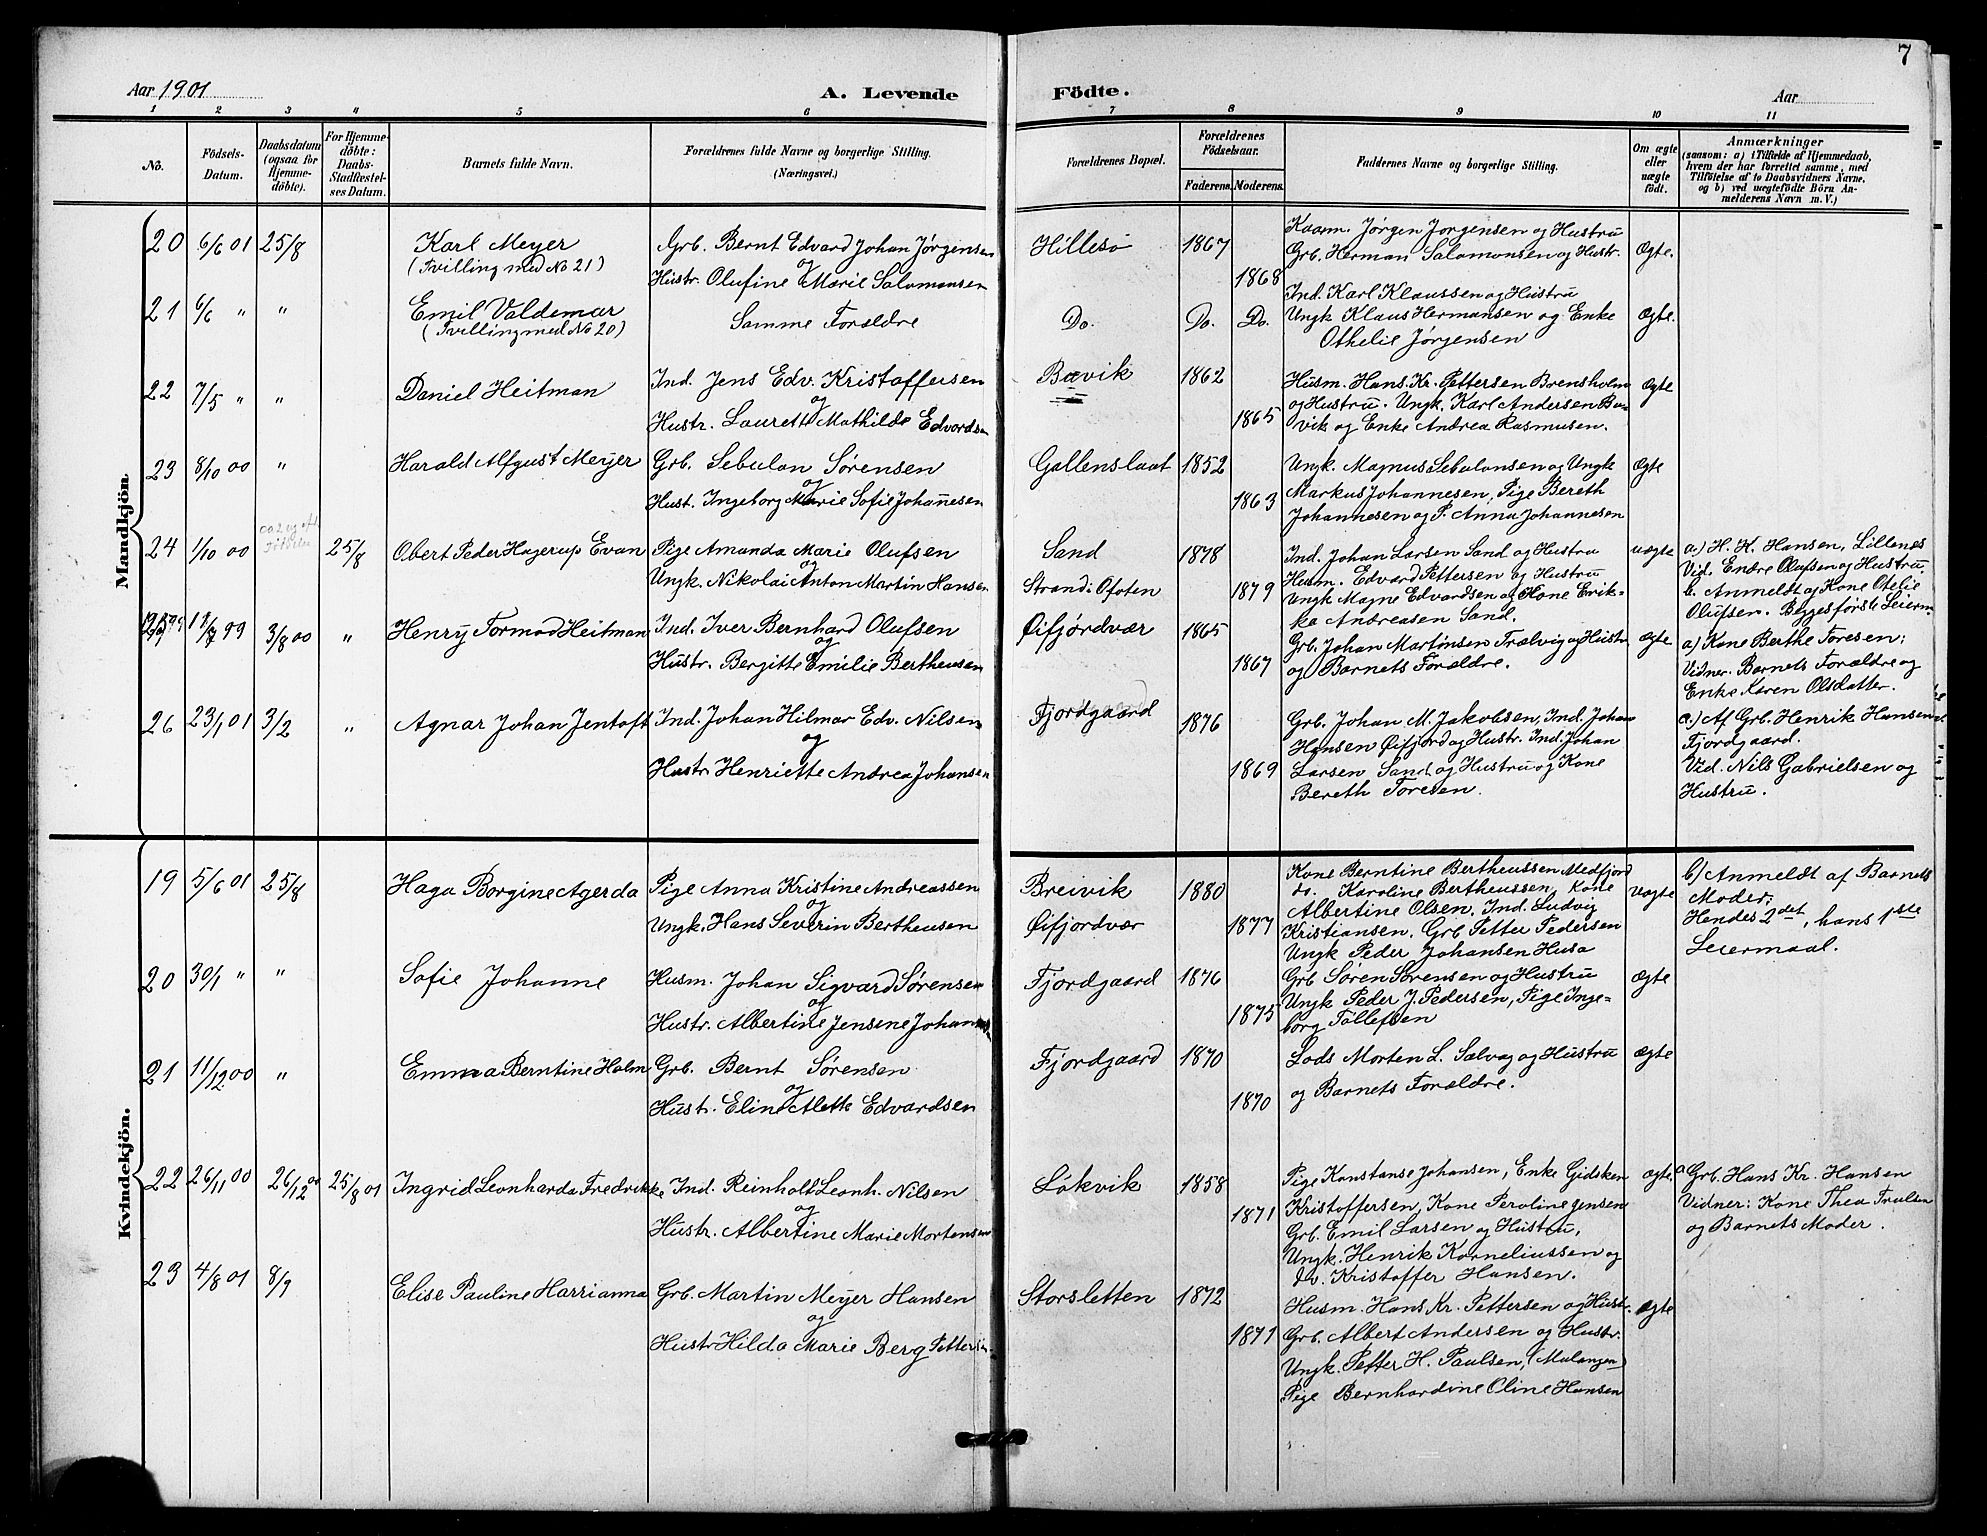 7
Aar 1901
A. Levende Födte.
Aar
1 2 3 4 5 6 7 8 9 10 11
No.
Födsels-Datum.
Daabsdatum (ogsaa for Hjemme-døbte).
For Hjemme-døbte: Daabs-Stadfæstel-ses Datum.
Barnets fulde Navn.
Forældrenes fulde Navne og borgerlige Stilling. (Næringsvei.)
Forældrenes Bopæl.
Forældrenes Födselsaar.
Faderens. Moderens.
Faddernes Navne og borgerlige Stilling.
Om ægte eller uægte født.
Anmærkninger
(saasom: a) i Tilfælde af Hjemmedaab,
hvem der har forrettet samme, med
Tilføielse af to Daabsvidners Navne,
og b) ved uægtefödte Börn An-
melderens Navn m. V.)
Mandkjön.
20 6/6 01 25/8 Karl Meyer
(Tvilling med No 21)
Grb. Bernt Edvard Johan Jørgensen
og
Hustr. Olufine Marie Salomonsen
Hillesø 1867
1868
Kaarm. Jørgen Jørgensen og Hustru
Grb. Herman Salomonsen og Hustr.
Ind. Karl Klaussen og Hustru
Ægte.
21 6/6 " " Emil Valdemar
(Tvilling med No 20)
Samme Forældre
Do. Do. Do.
Ungk. Klaus Hermansen og Enke
Othelie Jørgensen
Ægte.
22 7/5 " " Daniel Heitman
Ind. Jens Edv. Kristoffersen
og
Hustr. Laurette Mathilde Edvardsen
Bævik 1862
1865
Husm. Hans Kr. Pettersen Brensholm
og Hustru. Ungk. Karl Andersen Bæ-
vik og Enke Andrea Rasmusen.
Ægte
23 8/10 00 " Harald Alfgust Meyer
Grb. Sebulon Sørensen
og
Hust. Ingeborg Marie Sofie Johannesen
Gallenslaat 1852
1863
Ungk. Magnus Sebulonsen og Ungk
Markus Johannesen, Pige Bereth
Johannesen og P. Anna Johannesen
Ægte
24 1/10 00 25/8 Obert Peder Hagerup Evan
Pige Amanda Marie Olufsen
og
Ungk. Nikolai Anton Martin Hansen
Sand 1878
Strand i Ofoten 1879
Ind. Johan Larsen Sand og Hustru
Husm. Edvard Pettersen og Hustru
Ungk Magne Edvardsen og Kone Erik-
ka Andreasen Sand.
uægte
a.) H. K. Hansen, Lillenes
Vid. Endre Olufsen og Hustru.
b. Anmeldt af Kone Otelie
Olufsen. Begges første Leierm.
19/7 99 3/8 00 " Henry Tormod Heitman
Ind. Iver Bernhard Olufsen
og
Hustr. Bergitte Emilie Bertheusen
Øifjordvær 1865
1867
Grb. Johan Martinsen Trælvig og Hustr.
og Barnets Forældre.
Ægte
a) Kone Berthe Toresen:
Vidner. Barnets Forældre og
Enke Karen Olsdatter.
26 23/1 01 3/2 " Agnar Johan Jentoft
Ind. Johan Hilmar Edv. Nilsen
og
Hustr. Henriette Andrea Johansen
Fjordgaard 1876
1869
Grb. Johan M. Jakobsen, Ind. Johan
Hansen Øifjord og Hustr. Ind. Johan
Larsen Sand og Hustru og Kone
Bereth Toresen.
a.) Af Grb. Henrik Hansen
Fjordgaard.
Vid. Nils Gabrielsen og
Hustru.
Kvindekjön.
19 5/6 01 25/8 Haga Borgine Agerda
Pige Anna Kristine Andreassen
og
Ungk. Hans Severin Bertheusen
Breivik 1880
Øifjordvær 1877
Kone Berntine Bertheussen Medfjord
do. Karoline Bertheussen, Kone
Albertine Olsen, Ind. Ludvig
Kristiansen, Grb Petter Pedersen
Ungk Peder Johansen Husø
Uægte
b) Anmeldt af Barnets
Moder;
Hendes 2det, hans 1ste
Leiermaal.
20 30/1 " " Sofie Johanne
Husm. Johan Sigvard Sørensen
og
Hustr. Albertine Jensene
Fjordgaard 1876
1875
Grb Søren Sørensen og Hustru
Ungk Peder J. Pedersen, Pige Inge-
borg Tollefsen
Ægte
21 11/12 00 " Emma Berntine Holm
Grb. Bernt Sørensen
og
Hustr. Eline Alette Edvardsen
Fjordgaard 1870
1870
Lods Morten L. Salvag og Hustru
og Barnets Forældre.
Ægte
22 26/11 00 26/12 00 25/8 01 Ingrid Leonharda Fredrikke
Ind. Reinholt Leonh. Nilsen
og
Hustr. Albertine Marie Mortensen
Løkvik 1858
1871
Pige Konstanse Johansen, Enke Gidsken
Kristoffersen, Kone Peroline Jensen
Grb. Emil Larsen og Hustru,
Ungk. Henrik Korneliussen og
do. Kristoffer Hansen.
Ægte.
a Grb. Hans Kr. Hansen
Vidner: Kone Thea Trulsen
og Barnets Moder.
23 4/8 01 8/9 Elise Pauline Harrianna
Grb. Martin Meyer Hansen
og
Hustr Hilda Marie Berg Pettersen
Storsletten 1872
1871
Husm. Hans Kr. Pettersen og Hustr.
Grb. Albert Andersen og Hustr.
Ungk. Petter H. Paulsen, (Malangen)
Pige Bernhardine Oline Hansen
Ægte